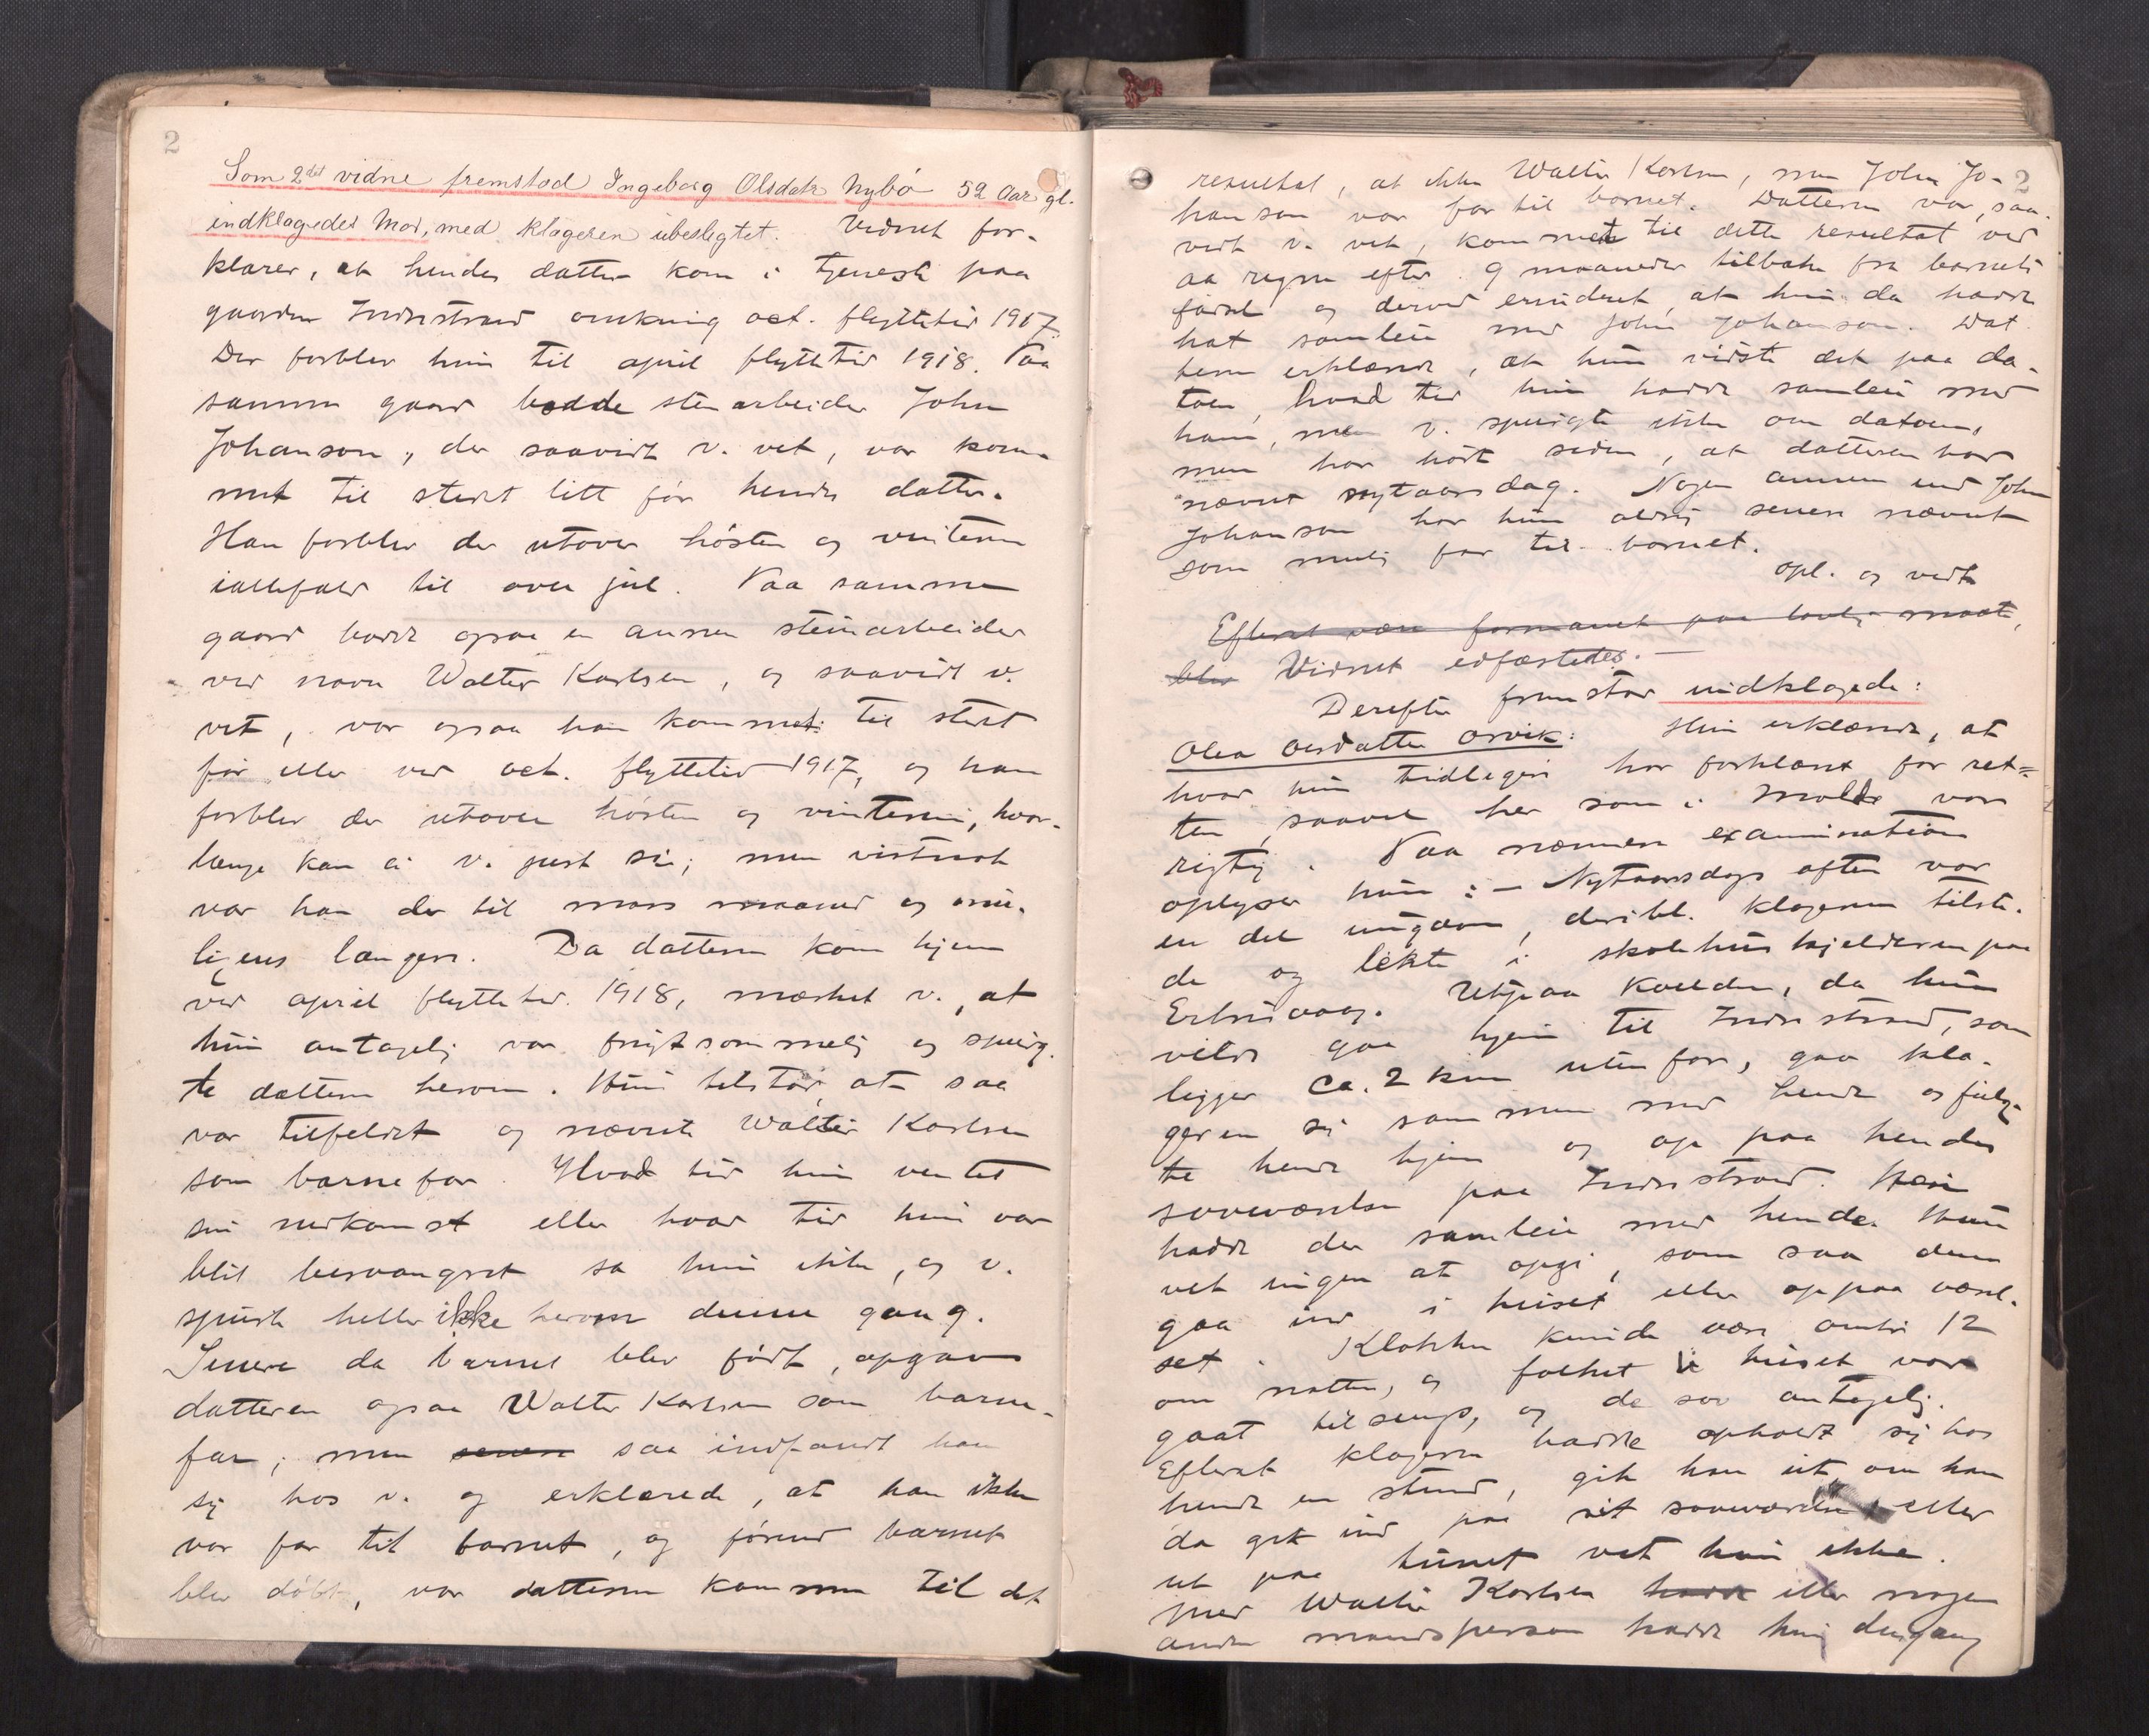 2
Som 2det vidne fremstod Ingeborg Olsdatr Nybö 52 Aar gl.
indklagedes Mor, med klageren ubeslegtet. Vidnet for-
klarer, at hendes datter kom i tjeneste paa
gaarden Indrestrand omkring oct. flyttetid 1917.
Der forblev hun til april flyttetid 1918. Paa
samme gaard bodde stenarbeider John
Johanson, der saavidt v. vet, var kom-
met til stedet litt før hendes datter.
Han forblev der utover hösten og vinteren
ialfald til over jul. Paa samme
gaard bodde ogsaa en annen stenarbeider
ved navn Walter Karlsen, og saavidt v.
vet, var ogsaa han kommet til stedet
før eller ved oct. flyttetid 1917, og han
forblev der utover hösten og vinteren, hvor-
længe kan ei v. just si; men vistnok
var han der til mars maaned og mu-
ligens længere. Da datteren kom hjem
ved april flyttetid 1918, mærket v., at
hun antagelig var frugtsommelig og spurg-
te datteren herom. Hun tilstod, at saa
var tilfeldet og nævnte Walter Karlsen
som barnefar. Hvad tid hun ventet
sin nedkomst eller hvad tid hun var
blit besvangret sa hun ikke, og v.
spurte heller ikke herom denne gang.
Senere da barnet blev född, opgav
datteren ogsaa Walter Karlsen som barne-
far; men senere saa indfandt han
sig hos v. og erklærede, at han ikke
var far til barnet, og förend barnet
blev döbt, var datteren kommen til det
2
resultat, at ikke Walter Karlsen, men John Jo-
hanson var far til barnet. Datteren var, saa-
vidt v. vet, kommet til dette resultat ved
aa regne efter 9 maaneder tilbake fra barnets
födsel og derved erindret, at hun da hadde
hat samleie med John Johanson. Dat-
teren erklærte, at hun vidste det paa da-
toen, hvad tid hun hadde samleie med
ham, men v. spurgte ikke om datoen,
men har hört siden, at datteren har
nævnt nytaarsdag. Nogen annen end John
Johanson har hun aldrig senere nævnt
som mulig far til barnet.
opl. og vedt.
Efterat være formanet paa lovlig maate,
blev Vidnet edfæstedes. —
Derefter fremstod indklagede:
Olea Olsdatter Orvik: Hun erklærte, at
hvad hun tidligere har forklart for ret-
ten, saavel her som i Molde var
rigtig. Paa nærmere examination
oplyser hun: — Nytaarsdags aften var
en del ungdom, deribl. klageren tilste-
de og lekte i skolehuskjelderen paa
. Utpaa kvelden, da hun
vilde gaa hjem til Indrestrand, som
ligger ca. 2 km utenfor, gav kla-
geren sig sammen med hende og fulg-
te hende hjem og op paa hendes
soveværelse paa Indrestrand. Han
hadde der samleie med hende. Hun
vet ingen at opgi, som saa dem
gaa ind i huset eller op paa værel-
set. Klokken kunde være omtr. 12
om natten, og folket i huset var
gaat tilsengs, og de sov antagelig.
Efterat klageren hadde opholdt sig hos
hende en stund, gik han ut om han
da gik ind paa sit soveværelse eller
ut paa tunet vet hun ikke.
Med Walter Karlsen hadde eller nogen
anden mandsperson hadde hun dengang